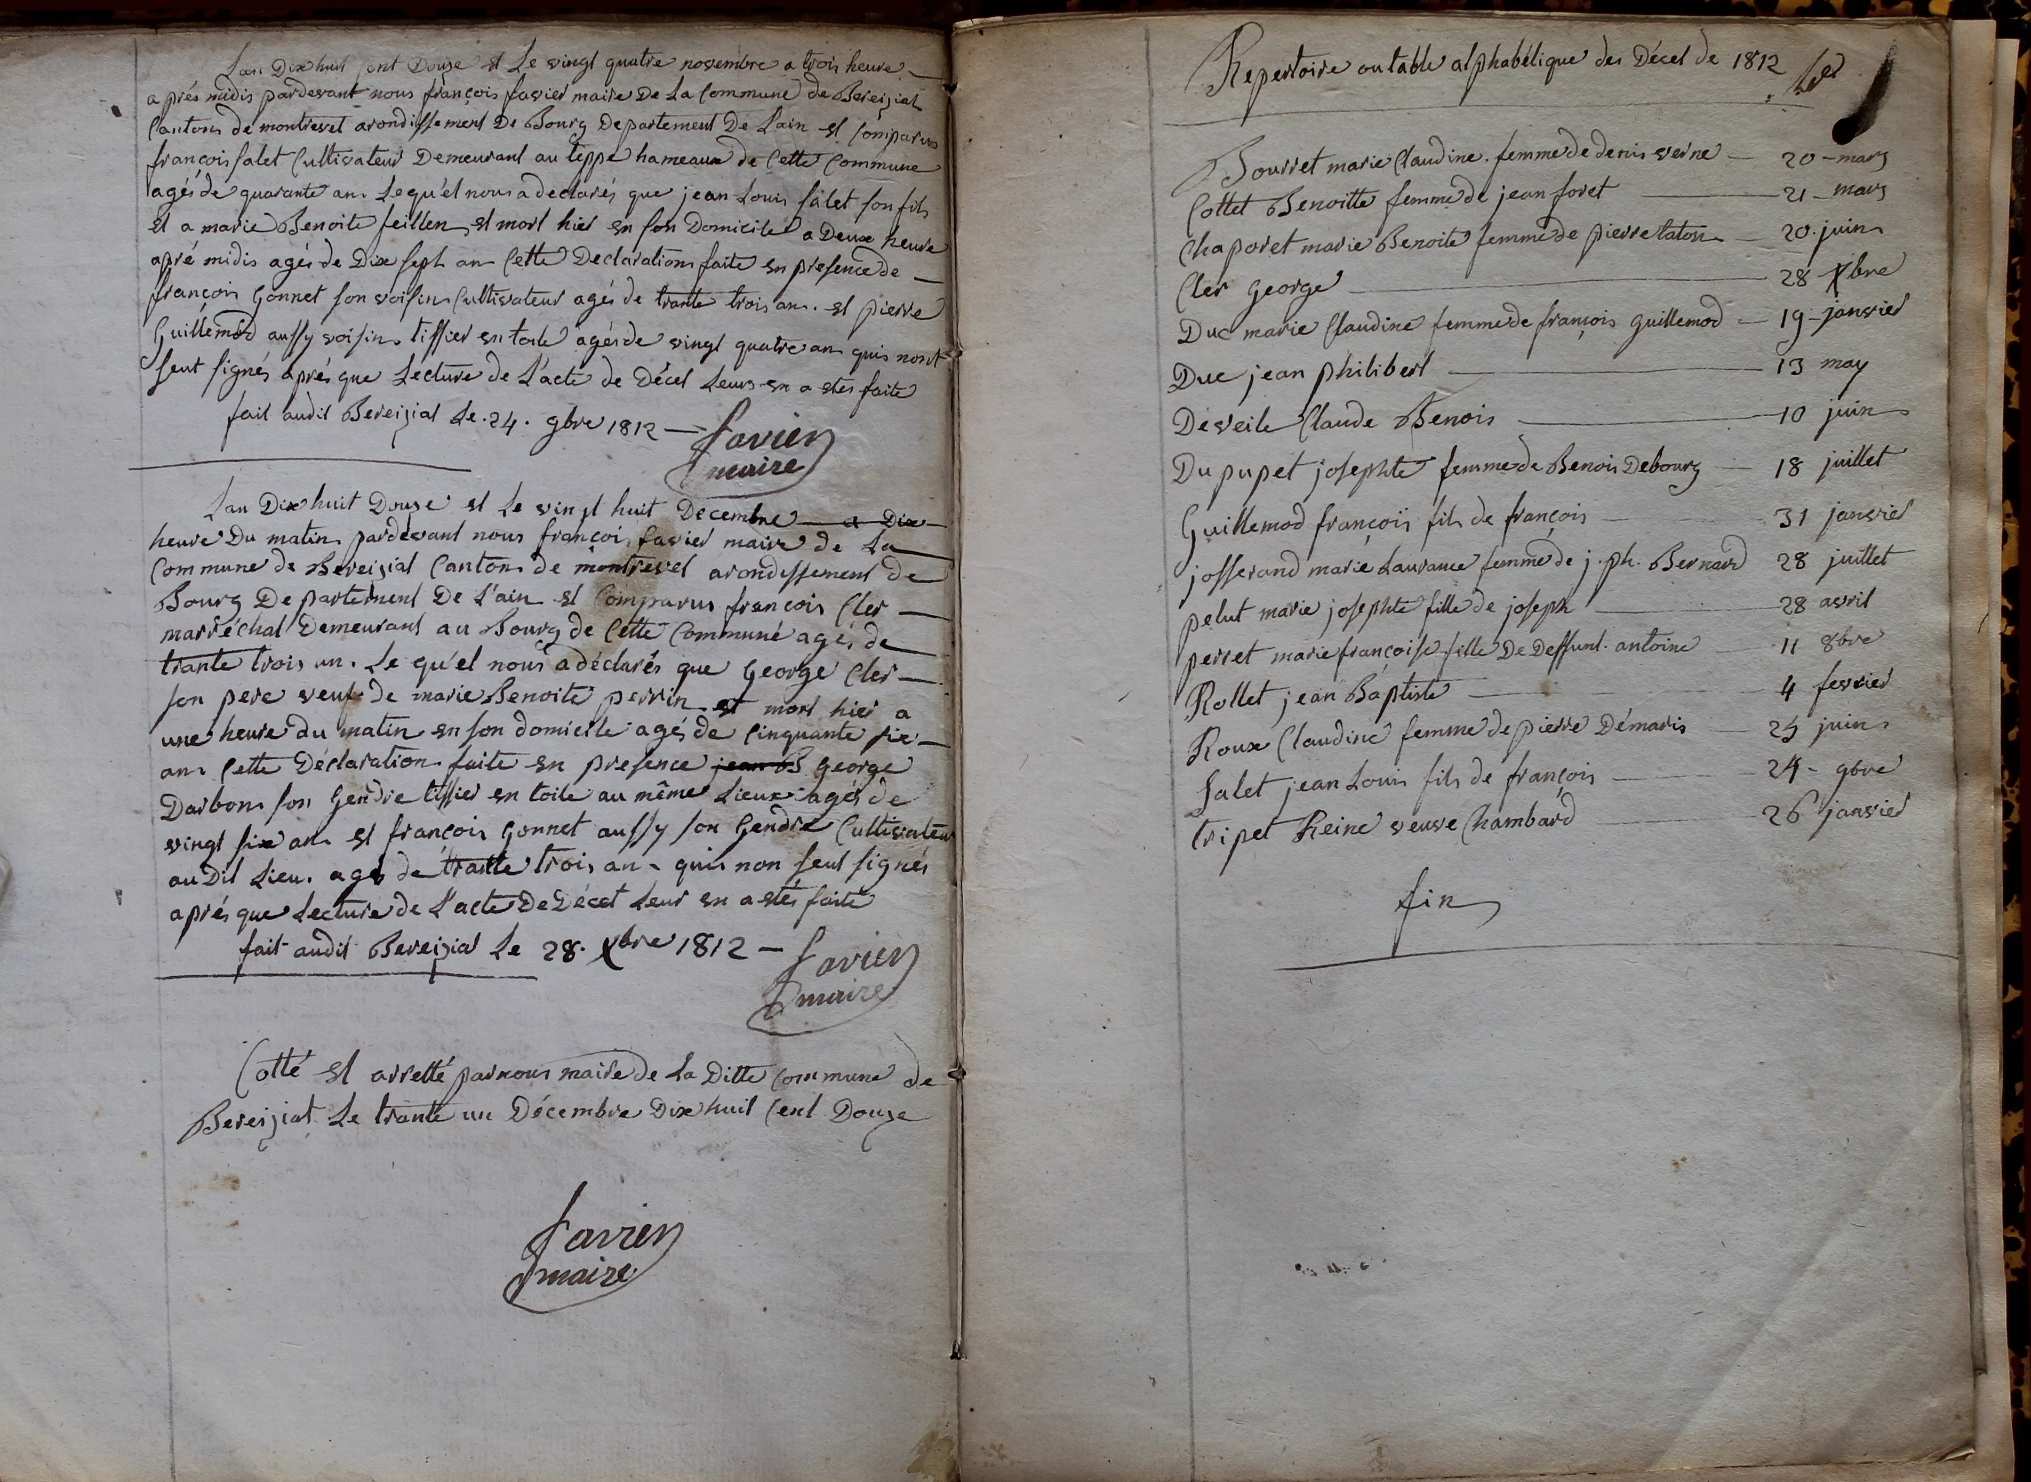 Lan Dix huit sent Douze et Le vingt quatre novembre a trois heure
a prés midis pardevant nous françois favier maire De La Commune de Bereiziat
Cantons de montrevel arondissement De Bourg Departement De Lain et Comparus
françois salet Cultivateur Demeurant au teppe hameaux de Cette Commune
agés de quarante an. Lequ'el nous a declarés que jean Louis salet son fils
et a marie Benoite feillen et mort hier en son Domicile a Deux heure
apré midis agés de Dix sept an Cette Declaration faite en presence de
françois Gonnet son voisin Cultivateur agés de trante trois an. et pierre
Guillemod aussy voisin tissier en toile agés de vingt quatre an quis nont
seut signés aprés que Lecture de L'acte de Décet Leurs en a etés faite
fait audit Bereiziat Le. 24. 9bre 1812
favier
maire
Lan Dix huit Douze et Le vingt huit Decembre a Dix
heure Du matin pardevant nous françois favier maire de La
Commune de Bereiziat Canton de montrevel arondissement de
Bourg Departement De L'ain et Comparus francois Cler
marréchal Demeurant au Bourg de Cette Commune agés de
trante trois an. Le qu'el nous a déclarés que George Cler
son pere veuf de marie Benoite perrin et mort hier a
une heure du matin en son domicile agés de Cinquante six
an. Cette Déclaration faite en presence jean B George
Darbon son Gendre tissier en toile au même Lieux agés de
vingt six an et françois Gonnet aussy son Gendre Cultivateur
au Dit Lieu. agés de trante trois an. quis non seut signés
aprés que Lecture de L'acte De Décet Leur en a etés faite
fait audit Bereiziat Le 28. Xbre 1812
favier
maire
Cotté et arretté par nous maire de La Ditte Commune de
Bereiziat Le trante un Décembre Dix huit Cent Douze
favier
maire
Repertoire ou table alphabétique des Décet de 1812
Bourret marie Claudine. femme de denis verne 20 mars
Cottet Benoitte femme de jean foret 21 mars
Chaporet marie Benoite femme de pierre taton 20. juin
Cler George 28 Xbre
Duc marie Claudine femme de françois guillemod 19 janvier
Duc jean philibert 13 may
Deveile Claude Benois 10 juin
Du pupet josephte femme de Benois Debourg 18 juillet
Guillemod françois fils de françois 31 janvier
josserand marie Laurance femme de j. ph. Bernard 28 juillet
pelut marie josephte fille de joseph 28 avril
perret marie françoise fille De Deffunt. antoine 11 8bre
Rollet jean Baptiste 4 fevrier
Roux Claudine femme de pierre Démaris 25 juin
Salet jean Louis fils de françois 24 9bre
tripet Reine veuve Chambard 26 janvier
fin